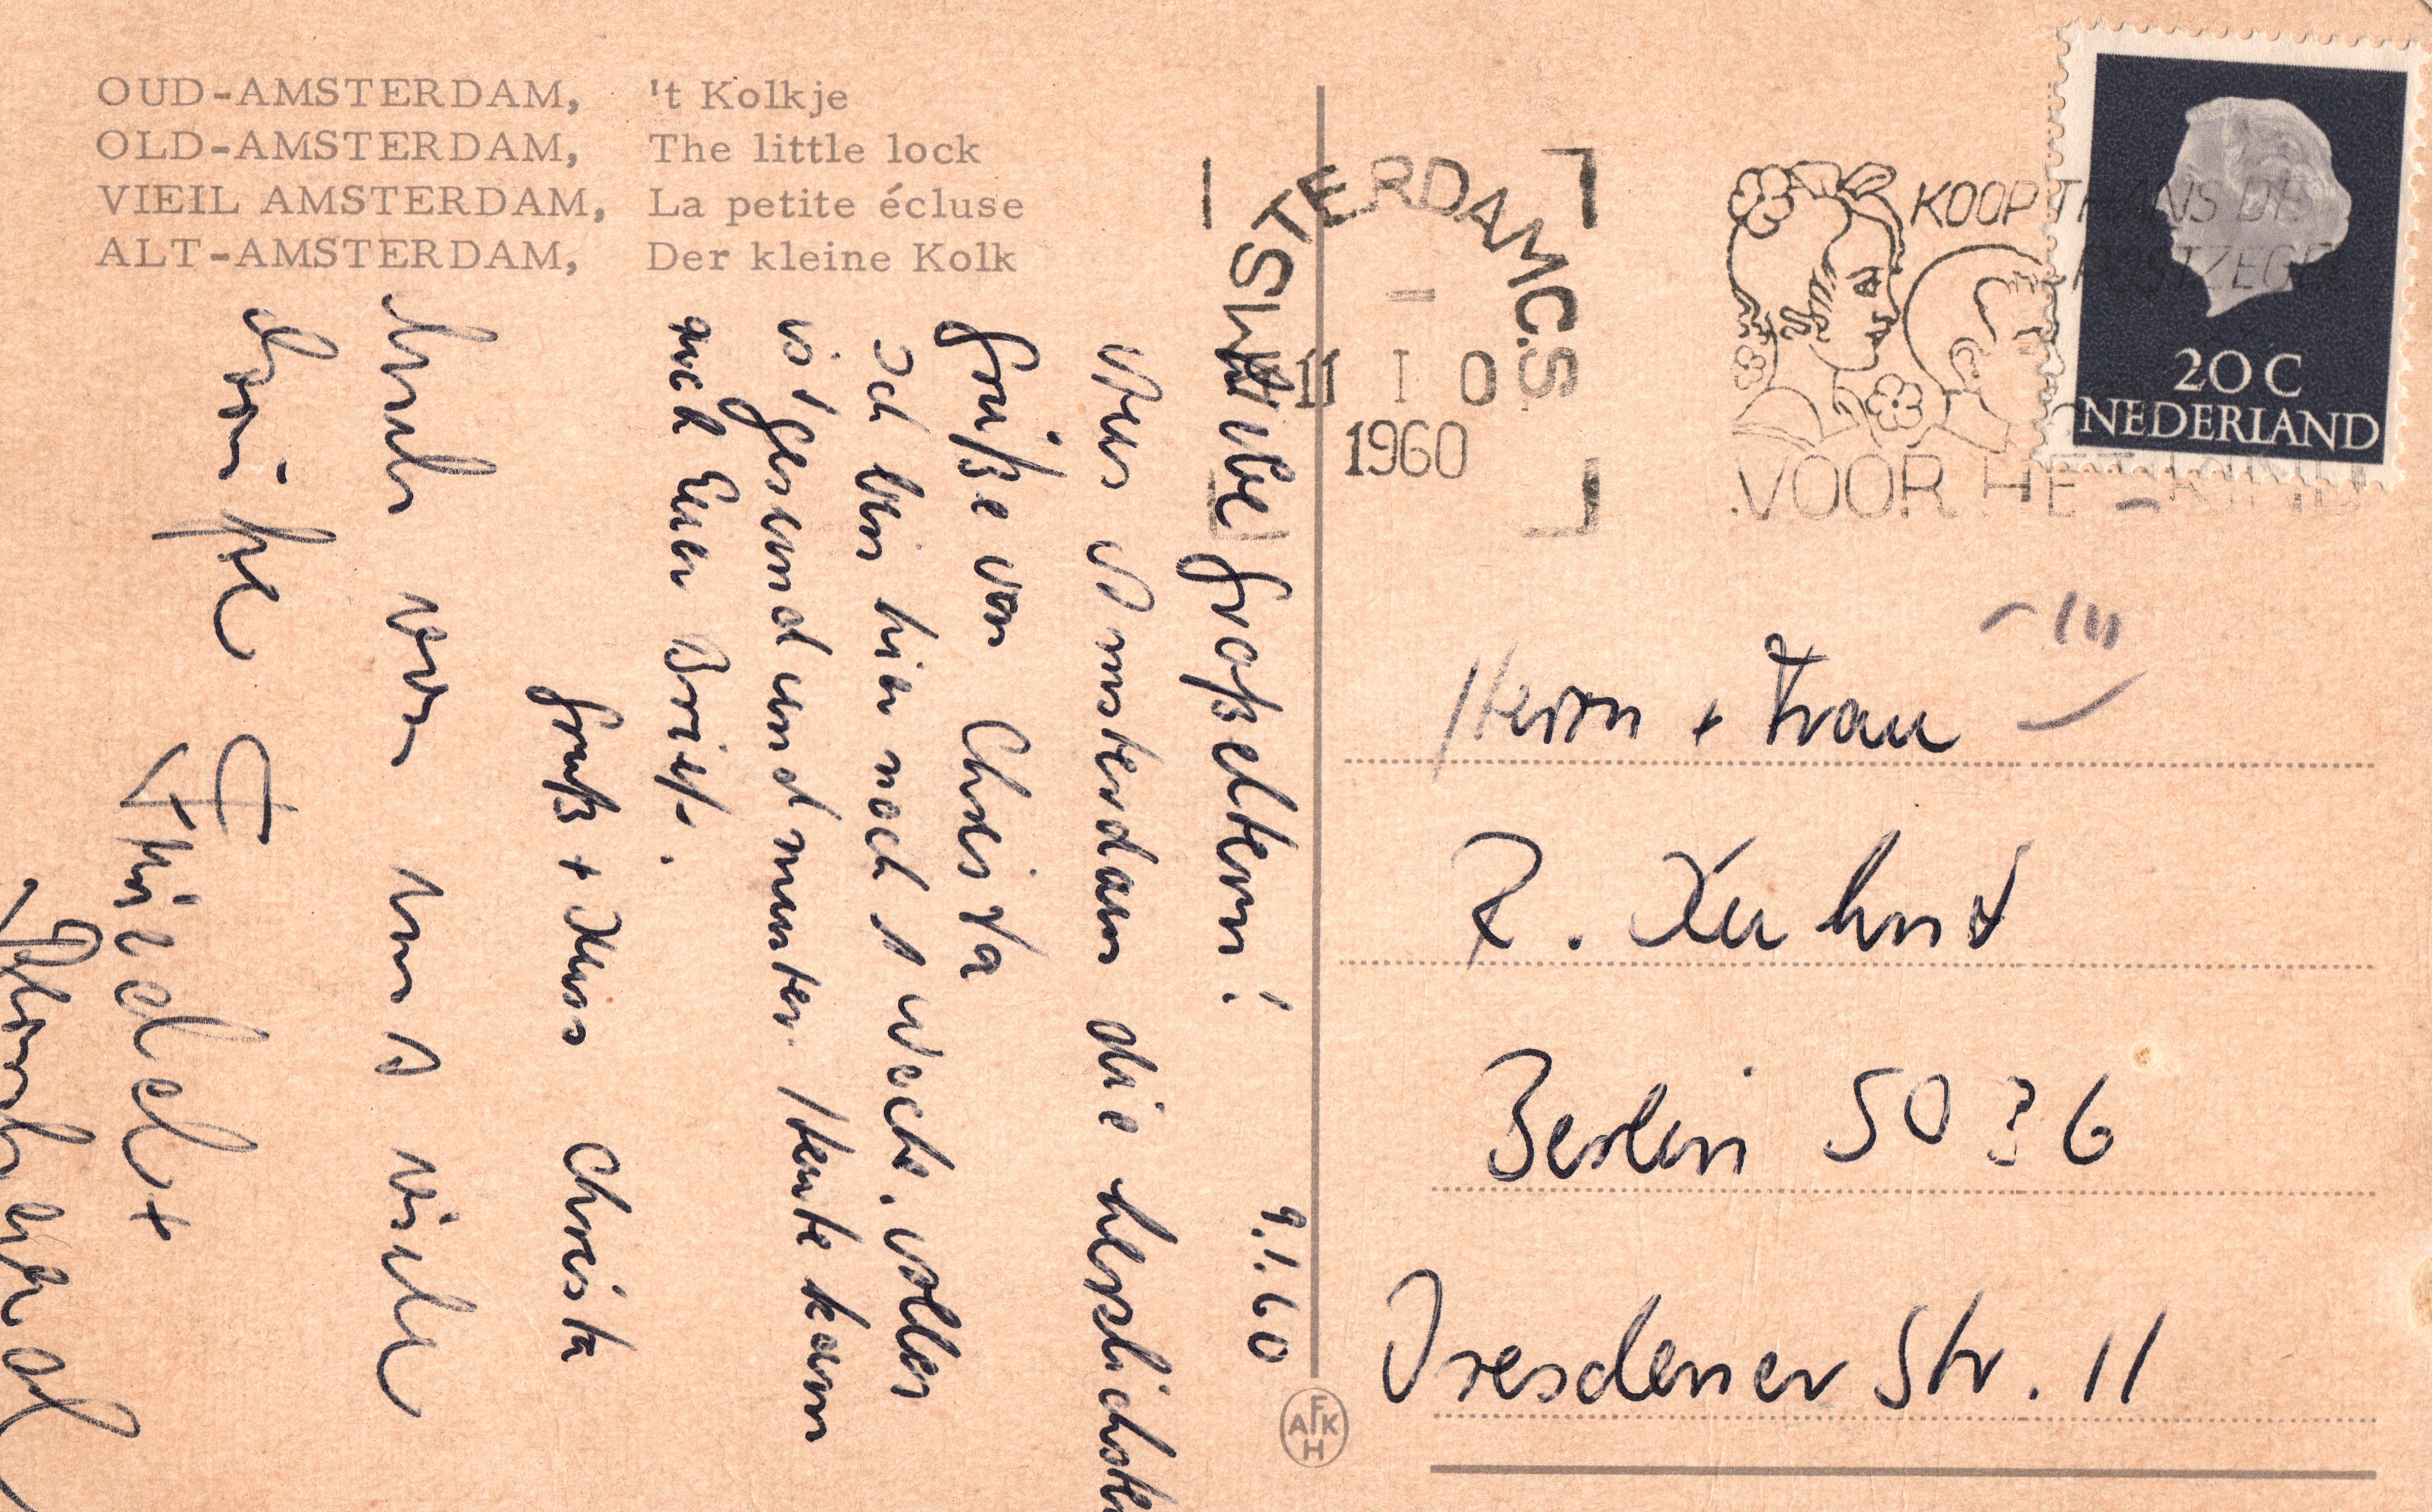 OUD-AMSTERDAM, 't Kolkje
OLD-AMSTERDAM, The little lock
VIEIL AMSTERDAM, La petite écluse
ALT-AMSTERDAM, Der kleine Kolk
9.1.60
Liebe Großeltern!
Aus Amsterdam die herzlichsten
Grüße von Christa
Ich bin hier noch 1 Woche. voller
gesund und munter. Heute kam
auch Euer Brief.
Gruß + Kuss Christa
Auch von uns viele
Grüße
AMSTERDAM C.S
1960
KOOP THANS DE
POSTZEGELS
VOOR HET KIND
20 C
NEDERLAND
Herrn + Frau
R. Kuhnt
Berlin SO 36
Dresdener Str. 11
AFKH